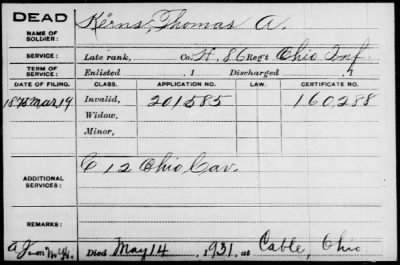 DEAD
NAME OF SOLDIER: Kerns, Thomas A.
SERVICE: Late rank, Co. H. 86 Reg't Ohio Inf.
TERM OF SERVICE: Enlisted , 1 Discharged , 1
DATE OF FILING. CLASS. APPLICATION NO. LAW. CERTIFICATE NO.
1875 Mar 19 Invalid, 201585 160,288
Widow,
Minor,
ADDITIONAL SERVICES: C 12 Ohio Cav.
REMARKS:
Died May 14, 1931, at Cable, Ohio